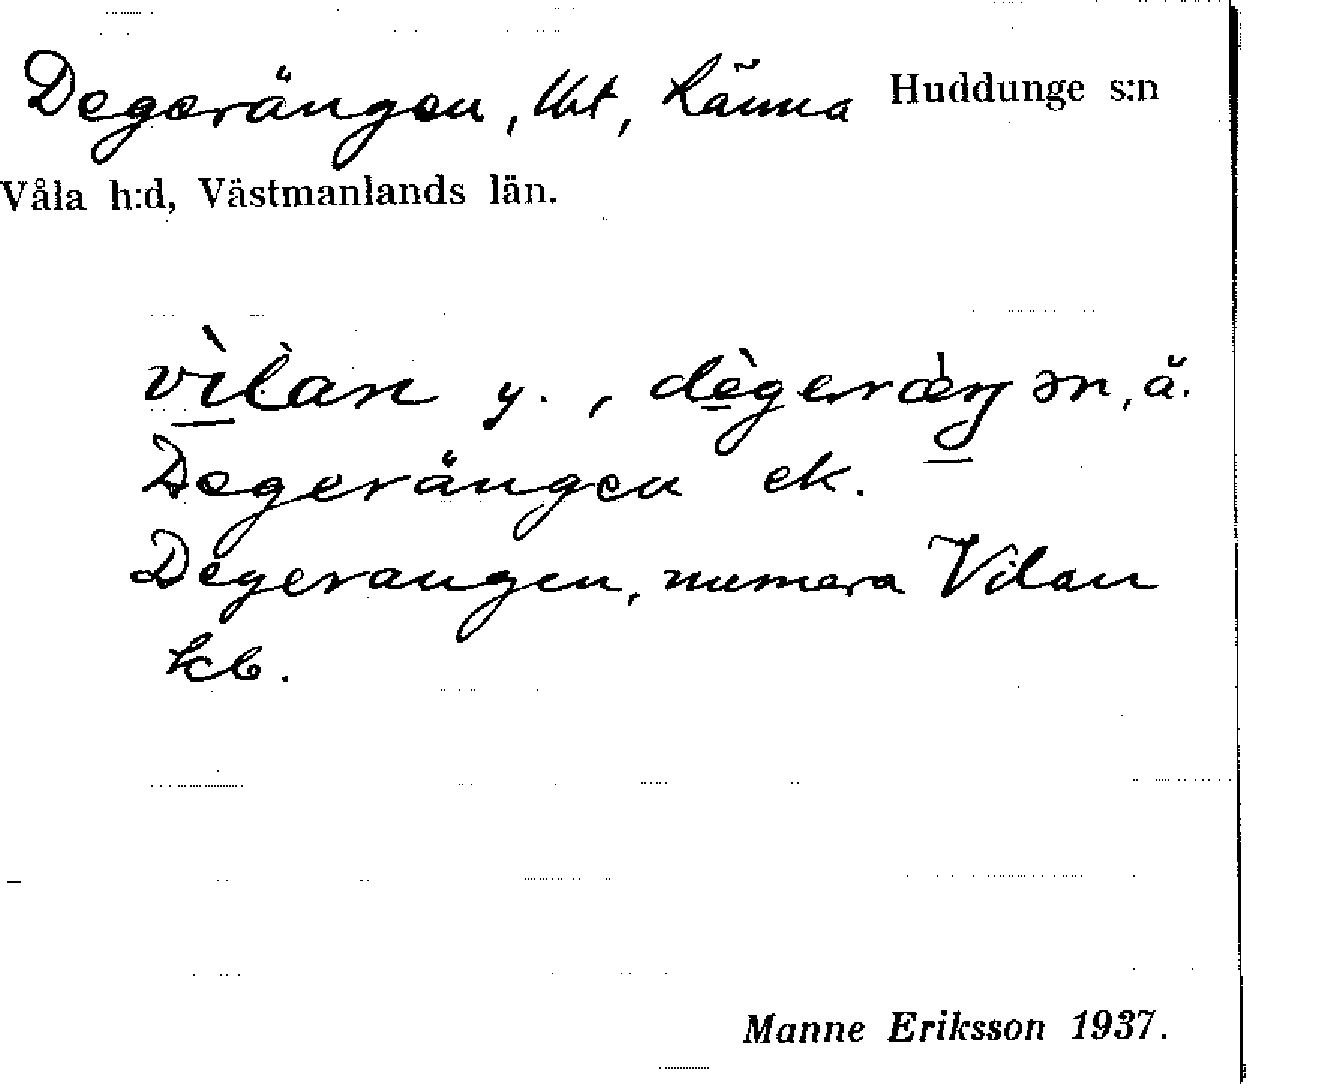 Degerängen, lht, Ränna Huddunge s:n
Våla h:d, Västmanlands län.
vìlan y., dègeræ̀ŋən, ä.
Degerängen ek.
Degerangen, numera Vilan
kb.
Manne Eriksson 1937.